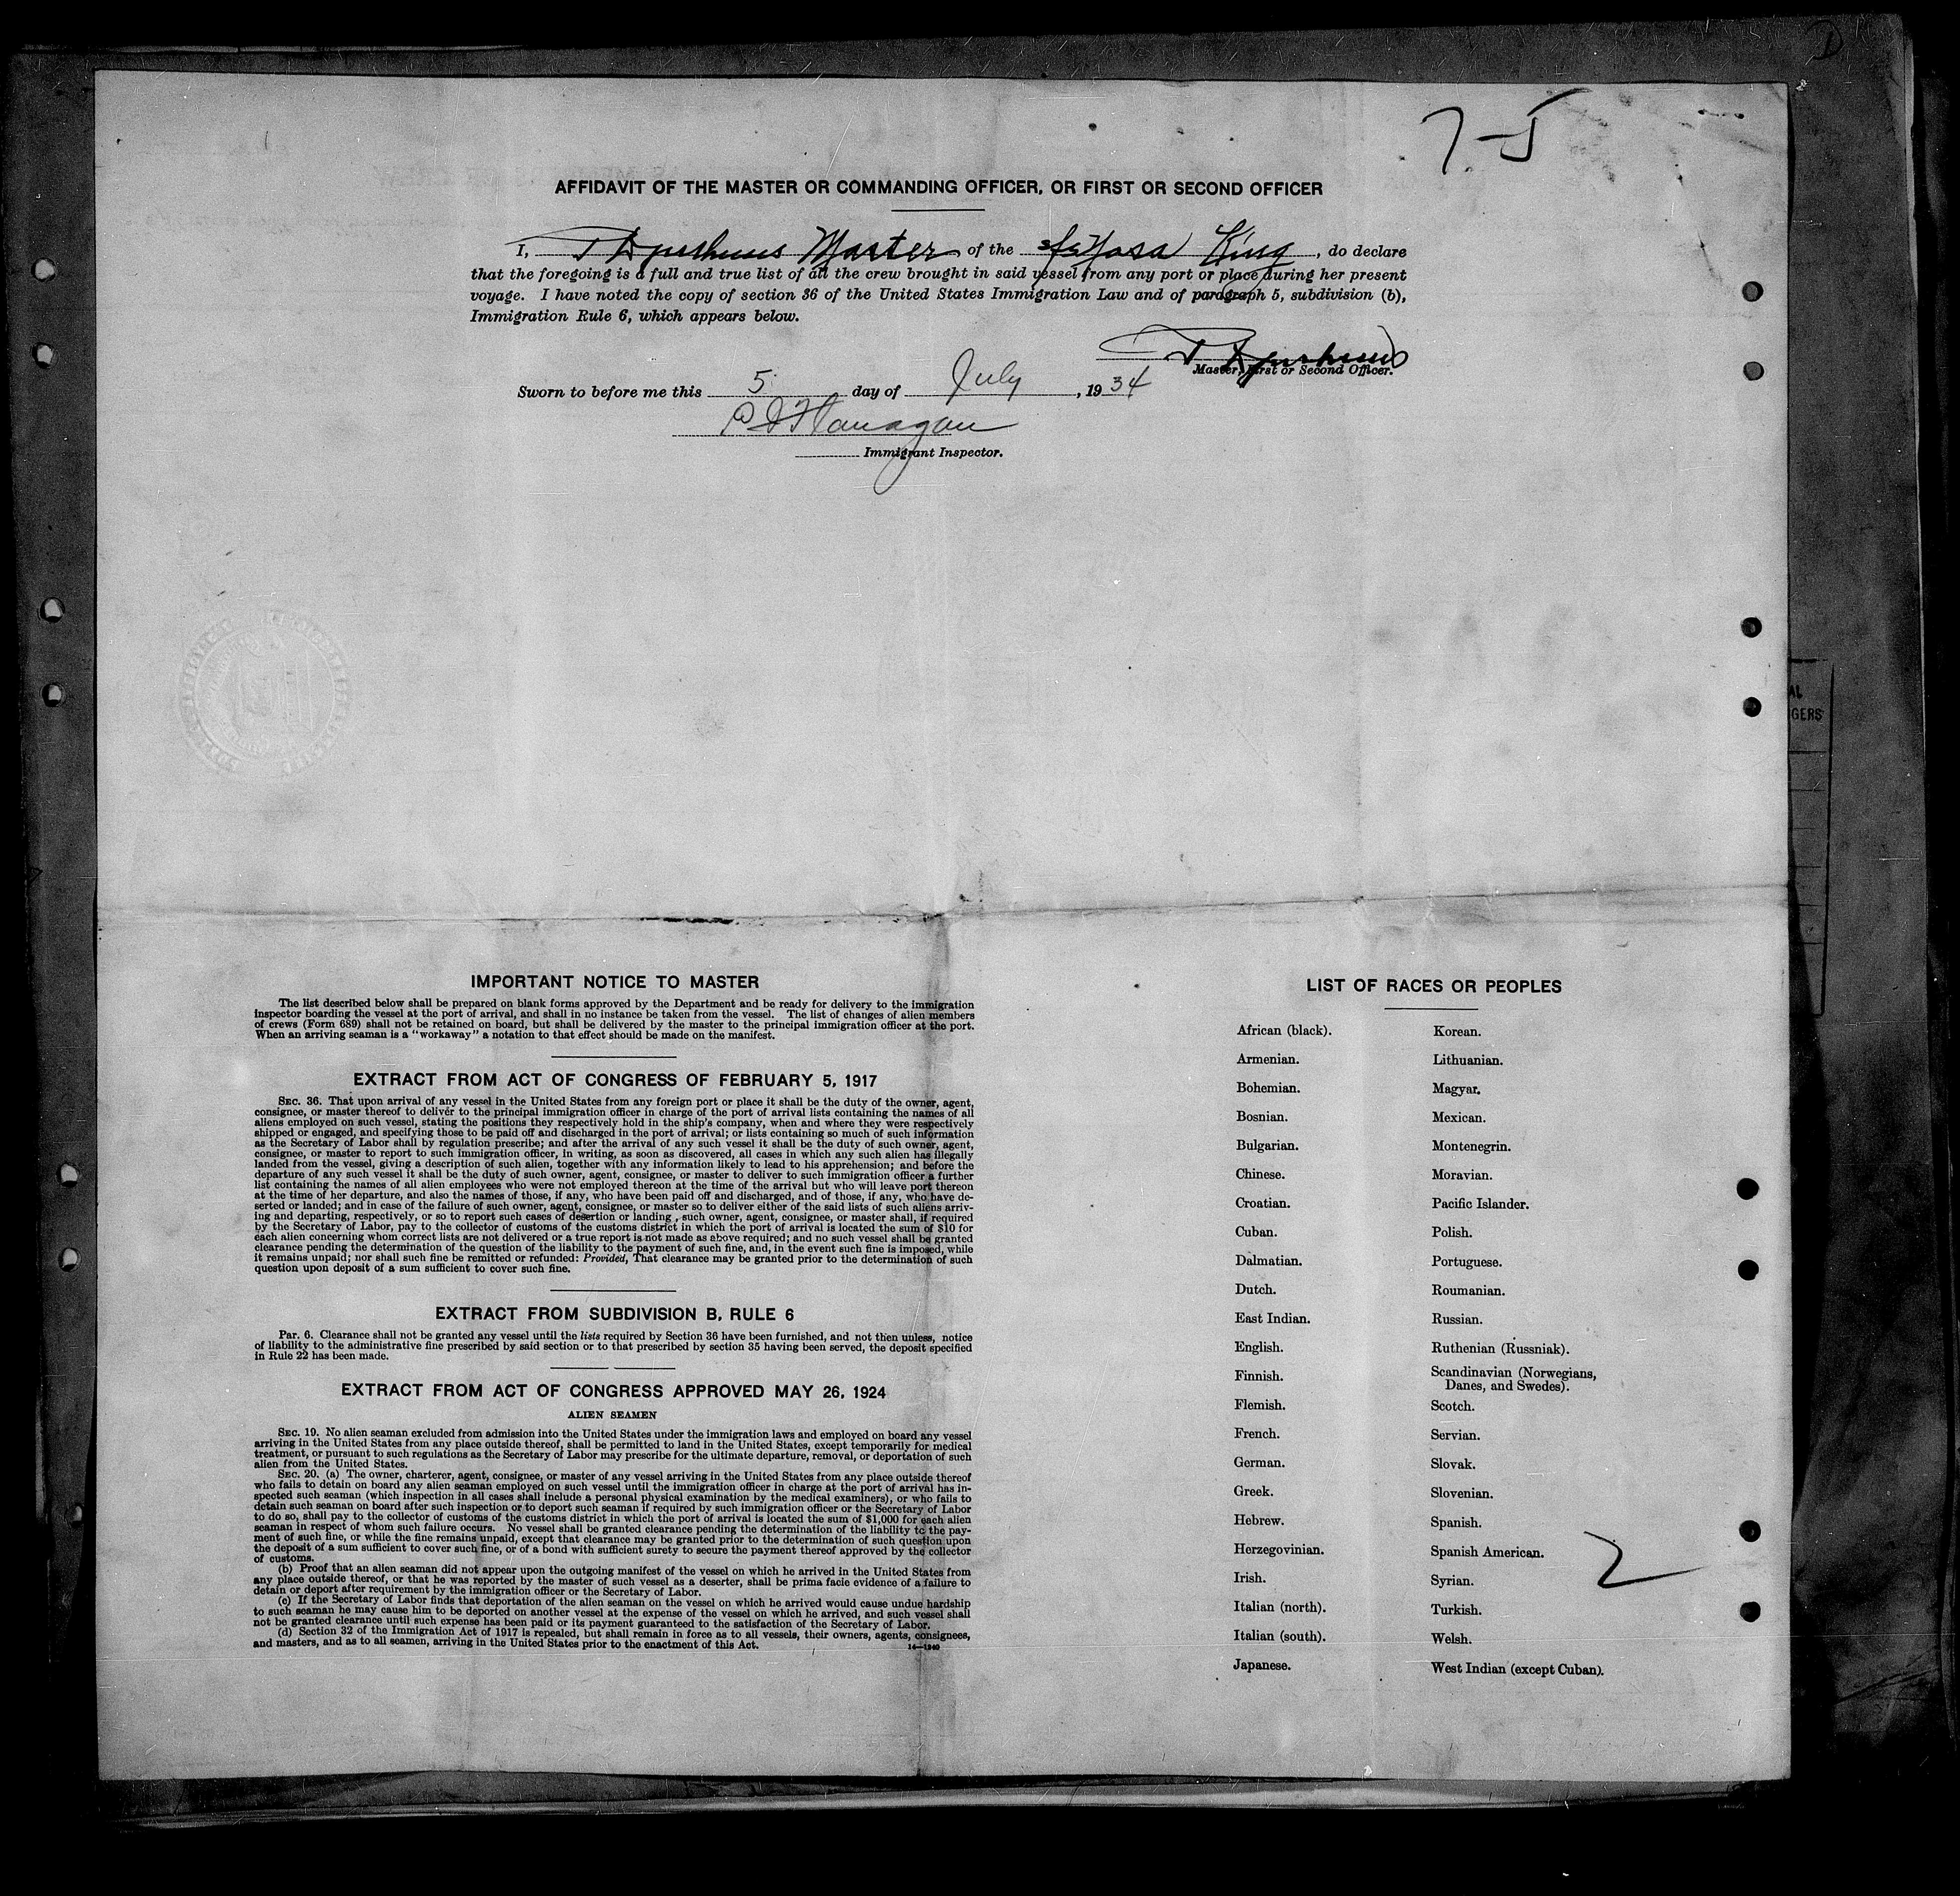 7-5
AFFIDAVIT OF THE MASTER OR COMMANDING OFFICER, OR FIRST OR SECOND OFFICER
I, Master of the Yosa King, do declare
that the foregoing is a full and true list of all the crew brought in said vessel from any port or place during her present
voyage. I have noted the copy of section 36 of the United States Immigration Law and of paragraph 5, subdivision (b),
Immigration Rule 6, which appears below.
Master, First or Second Officer.
Sworn to before me this 5 day of July, 1934
Flanagan
Immigrant Inspector.
AL
GERS
IMPORTANT NOTICE TO MASTER
The list described below shall be prepared on blank forms approved by the Department and be ready for delivery to the immigration
inspector boarding the vessel at the port of arrival, and shall in no instance be taken from the vessel. The list of changes of alien members
of crews (Form 689) shall not be retained on board, but shall be delivered by the master to the principal immigration officer at the port.
When an arriving seaman is a "workaway" a notation to that effect should be made on the manifest.
EXTRACT FROM ACT OF CONGRESS OF FEBRUARY 5, 1917
SEC. 36. That upon arrival of any vessel in the United States from any foreign port or place it shall be the duty of the owner, agent,
consignee, or master thereof to deliver to the principal immigration officer in charge of the port of arrival lists containing the names of all
aliens employed on such vessel, stating the positions they respectively hold in the ship's company, when and where they were respectively
shipped or engaged, and specifying those to be paid off and discharged in the port of arrival; or lists containing so much of such information
as the Secretary of Labor shall by regulation prescribe; and after the arrival of any such vessel it shall be the duty of such owner, agent,
consignee, or master to report to such immigration officer, in writing, as soon as discovered, all cases in which any such alien has illegally
landed from the vessel, giving a description of such alien, together with any information likely to lead to his apprehension; and before the
departure of any such vessel it shall be the duty of such owner, agent, consignee, or master to deliver to such immigration officer a further
list containing the names of all alien employees who were not employed thereon at the time of the arrival but who will leave port thereon
at the time of her departure, and also the names of those, if any, who have been paid off and discharged, and of those, if any, who have de-
serted or landed; and in case of the failure of such owner, agent, consignee, or master so to deliver either of the said lists of such aliens arriv-
ing and departing, respectively, or so to report such cases of desertion or landing, such owner, agent, consignee, or master shall, if required
by the Secretary of Labor, pay to the collector of customs of the customs district in which the port of arrival is located the sum of $10 for
each alien concerning whom correct lists are not delivered or a true report is not made as above required; and no such vessel shall be granted
clearance pending the determination of the question of the liability to the payment of such fine, and, in the event such fine is imposed, while
it remains unpaid; nor shall such fine be remitted or refunded: Provided, That clearance may be granted prior to the determination of such
question upon deposit of a sum sufficient to cover such fine.
EXTRACT FROM SUBDIVISION B, RULE 6
Par. 6. Clearance shall not be granted any vessel until the lists required by Section 36 have been furnished, and not then unless, notice
of liability to the administrative fine prescribed by said section or to that prescribed by section 35 having been served, the deposit specified
in Rule 22 has been made.
EXTRACT FROM ACT OF CONGRESS APPROVED MAY 26, 1924
ALIEN SEAMEN
SEC. 19. No alien seaman excluded from admission into the United States under the immigration laws and employed on board any vessel
arriving in the United States from any place outside thereof, shall be permitted to land in the United States, except temporarily for medical
treatment, or pursuant to such regulations as the Secretary of Labor may prescribe for the ultimate departure, removal, or deportation of such
alien from the United States.
SEC. 20. (a) The owner, charterer, agent, consignee, or master of any vessel arriving in the United States from any place outside thereof
who fails to detain on board any alien seaman employed on such vessel until the immigration officer in charge at the port of arrival has in-
spected such seaman (which inspection in all cases shall include a personal physical examination by the medical examiners), or who fails to
detain such seaman on board after such inspection or to deport such seaman if required by such immigration officer or the Secretary of Labor
to do so, shall pay to the collector of customs of the customs district in which the port of arrival is located the sum of $1,000 for each alien
seaman in respect of whom such failure occurs. No vessel shall be granted clearance pending the determination of the liability to the pay-
ment of such fine, or while the fine remains unpaid, except that clearance may be granted prior to the determination of such question upon
the deposit of a sum sufficient to cover such fine, or of a bond with sufficient surety to secure the payment thereof approved by the collector
of customs.
(b) Proof that an alien seaman did not appear upon the outgoing manifest of the vessel on which he arrived in the United States from
any place outside thereof, or that he was reported by the master of such vessel as a deserter, shall be prima facie evidence of a failure to
detain or deport after requirement by the immigration officer or the Secretary of Labor.
(c) If the Secretary of Labor finds that deportation of the alien seaman on the vessel on which he arrived would cause undue hardship
to such seaman he may cause him to be deported on another vessel at the expense of the vessel on which he arrived, and such vessel shall
not be granted clearance until such expense has been paid or its payment guaranteed to the satisfaction of the Secretary of Labor.
(d) Section 32 of the Immigration Act of 1917 is repealed, but shall remain in force as to all vessels, their owners, agents, consignees,
and masters, and as to all seamen, arriving in the United States prior to the enactment of this Act.
14—1240
LIST OF RACES OR PEOPLES
African (black).
Armenian.
Bohemian.
Bosnian.
Bulgarian.
Chinese.
Croatian.
Cuban.
Dalmatian.
Dutch.
East Indian.
English.
Finnish.
Flemish.
French.
German.
Greek.
Hebrew.
Herzegovinian.
Irish.
Italian (north).
Italian (south).
Japanese.
Korean.
Lithuanian.
Magyar.
Mexican.
Montenegrin.
Moravian.
Pacific Islander.
Polish.
Portuguese.
Roumanian.
Russian.
Ruthenian (Russniak).
Scandinavian (Norwegians,
Danes, and Swedes).
Scotch.
Servian.
Slovak.
Slovenian.
Spanish.
Spanish American.
Syrian.
Turkish.
Welsh.
West Indian (except Cuban).
2